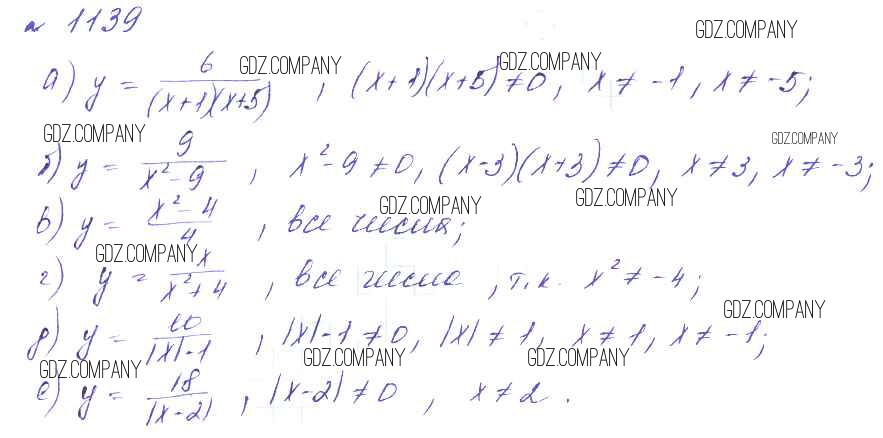 № 1139
GDZ.COMPANY
а) y = 6/((x+1)(x+5)), (x+1)(x+5) ≠ 0, x ≠ -1, x ≠ -5;
GDZ.COMPANY GDZ.COMPANY
GDZ.COMPANY GDZ.COMPANY
б) y = 9/(x²-9), x²-9 ≠ 0, (x-3)(x+3) ≠ 0, x ≠ 3, x ≠ -3;
GDZ.COMPANY GDZ.COMPANY
в) y = (x²-4)/4, все числа;
GDZ.COMPANY
г) y = x/(x²+4), все числа, т.к. x² ≠ -4;
GDZ.COMPANY
д) y = 10/(|x|-1), |x|-1 ≠ 0, |x| ≠ 1, x ≠ 1, x ≠ -1;
GDZ.COMPANY GDZ.COMPANY GDZ.COMPANY
е) y = 18/|x-2|, |x-2| ≠ 0, x ≠ 2.